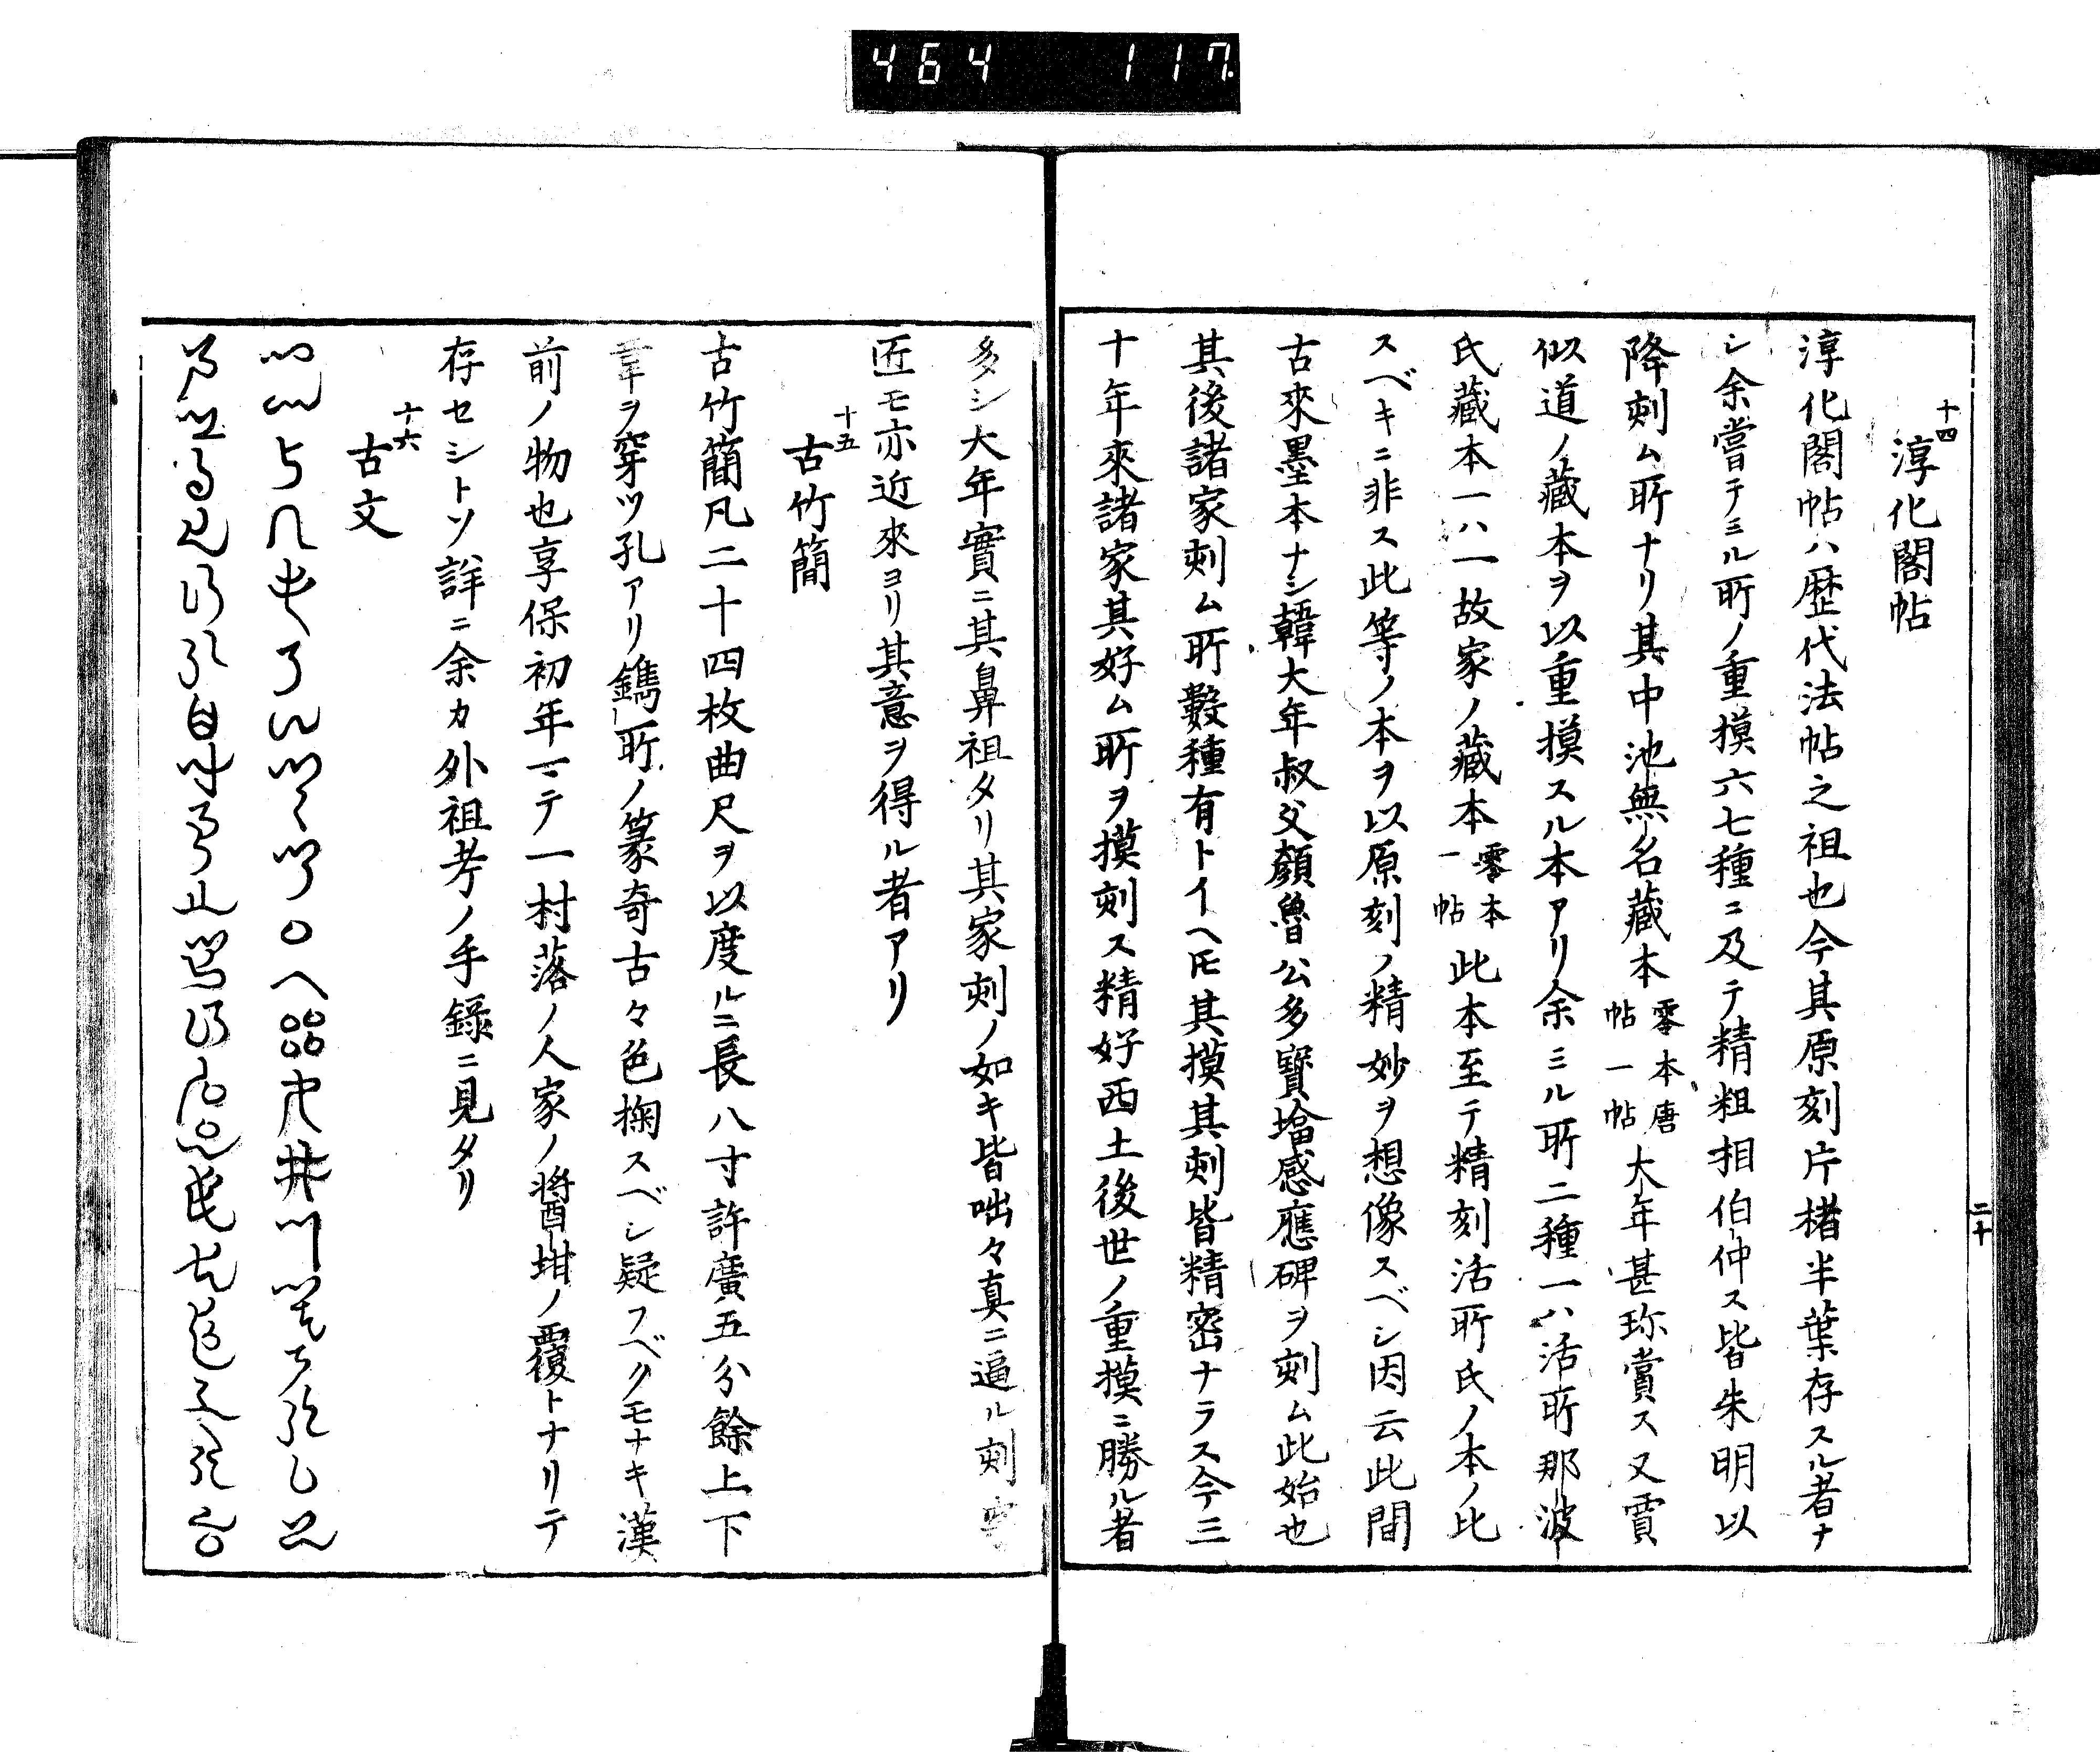 464 117.
十四 淳化閣帖
淳化閣帖ハ歴代法帖之祖也今其原刻片楮半葉存スル者ナ
シ余嘗テミル所ノ重摸六七種ニ及テ精粗相伯仲ス皆朱明以
降刻ム所ナリ其中池無名藏本零本唐帖一帖大年甚珎賞ス又賈
似道ノ藏本ヲ以重摸スル本アリ余ミル所二種一ハ活所那波
氏藏本一ハ一故家ノ藏本零本一帖此本至テ精刻活所氏ノ本ノ比
スベキニ非ス此等ノ本ヲ以原刻ノ精妙ヲ想像スベシ因云此間
古來墨本ナシ韓大年叔父顏魯公多寳墖感應碑ヲ刻ム此始也
其後諸家刻ム所數種有トイヘ𪜈其摸其刻皆精密ナラス今三
十年來諸家其好ム所ヲ摸刻ス精好西土後世ノ重摸ニ勝ル者
二十
多シ大年實ニ其鼻祖タリ其家刻ノ如キ皆咄々真ニ逼ル刻
匠モ亦近來ヨリ其意ヲ得ル者アリ
十五 古竹簡
古竹簡凡二十四枚曲尺ヲ以度ルニ長八寸許廣五分餘上下
韋ヲ穿ツ孔アリ鐫所ノ篆奇古々色掬スベシ疑フベクモナキ漢
前ノ物也享保初年マテ一村落ノ人家ノ醬坩ノ覆トナリテ
存セシトソ詳ニ余カ外祖考ノ手録ニ見タリ
十六 古文